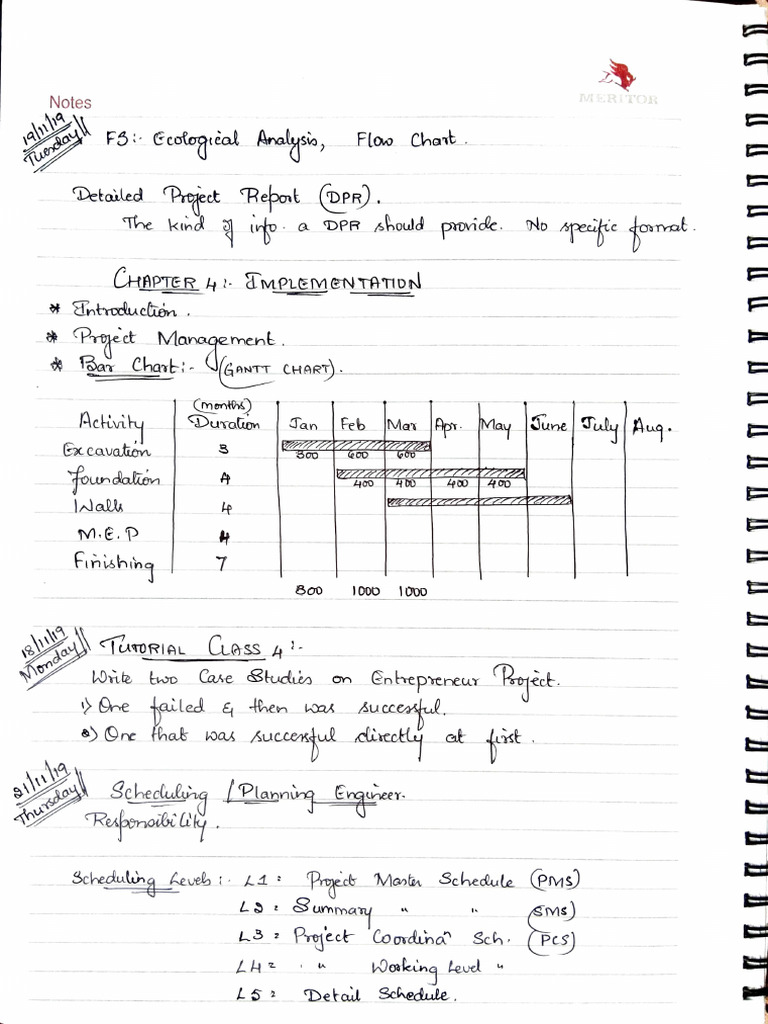 MERITOR
Notes
19/11/19
Tuesday
FS:- Ecological Analysis, Flow Chart.
Detailed Project Report (DPR).
The kind of info. a DPR should provide. No specific format.
CHAPTER 4:- IMPLEMENTATION
* Introduction.
* Project Management.
* Bar Chart:- (GANTT CHART).
Activity (months) Duration Jan Feb Mar Apr. May June July Aug.
Excavation 3 300 600 600
Foundation 4 400 400 400 400
Walls 4
M.E.P 4
Finishing 7
300 1000 1000
18/11/19
Monday
TUTORIAL CLASS 4:-
Write two Case Studies on Entrepreneur Project.
1) One failed & then was successful.
2) One that was successful directly at first.
21/11/19
Thursday
Scheduling / Planning Engineer.
Responsibility.
Scheduling Levels:- L1 = Project Master Schedule (PMS)
L2 = Summary " " (SMS)
L3 = Project Coordinaⁿ Sch. (PCS)
L4 = " Working Level "
L5 = Detail Schedule.